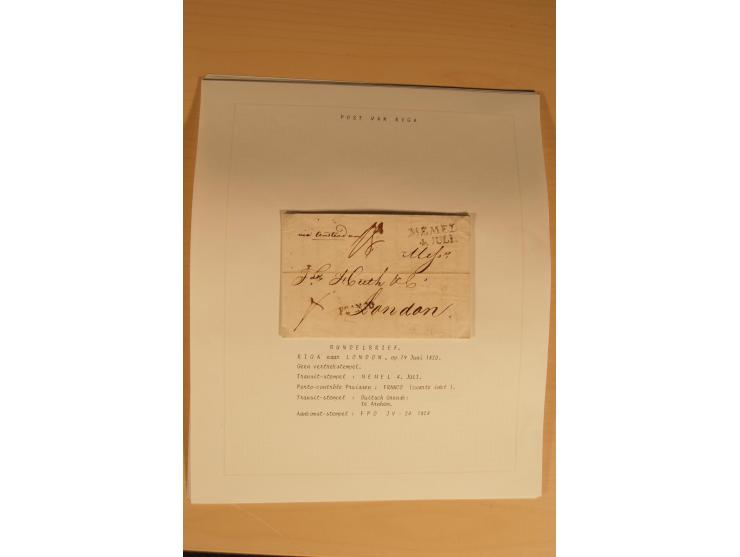 POST VAN RIGA
via Amsterdam
MEMEL
4. JULI.
Messrs
Fdk Huth & Co
FRANCO
London.
BUNDELBRIEF.
RIGA naar LONDON, op 19 Juni 1820.
Geen vertrekstempel.
Transit-stempel : MEMEL 4. JULI.
Porto-contrôle Pruissen : FRANCO (zwarte inkt ).
Transit-stempel :
te Arnhem.
Aankomst-stempel : FPO JY - 24 1824